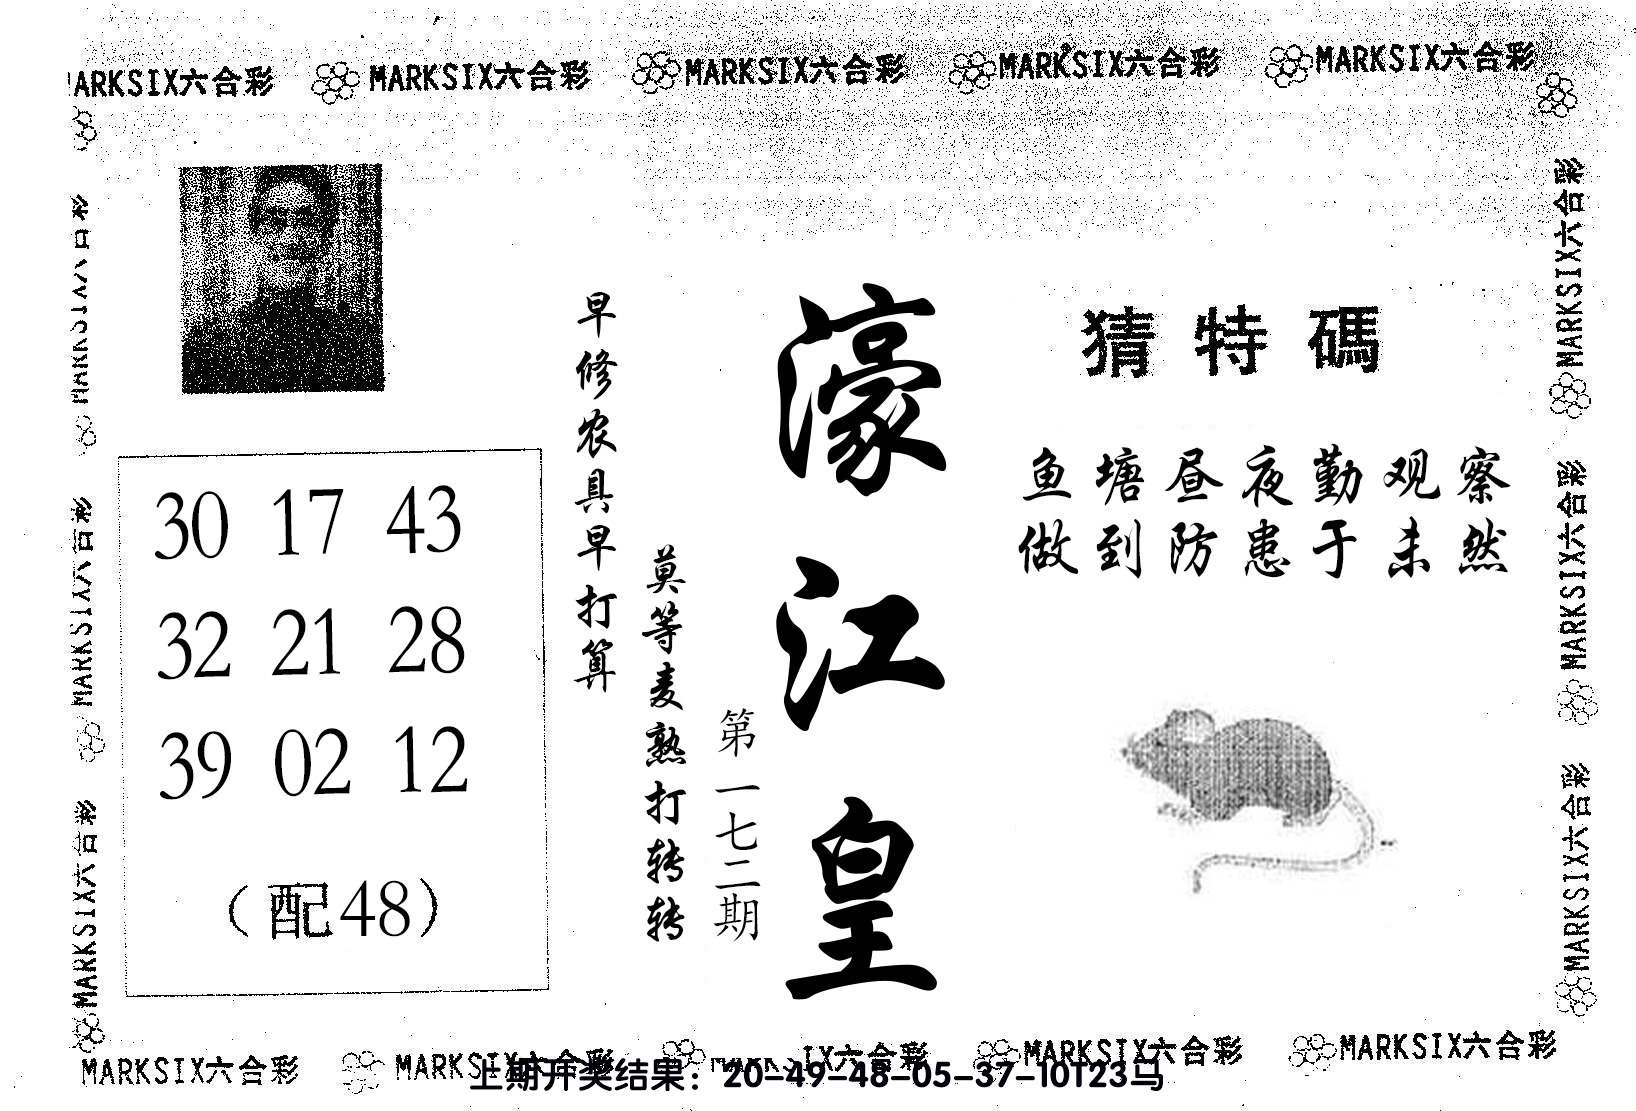 MARKSIX六合彩 MARKSIX六合彩 MARKSIX六合彩 MARKSIX六合彩 MARKSIX六合彩
猜特碼
鱼塘昼夜勤观察
做到防患于未然
濠江皇
第一七二期
早修农具早打算
莫等麦熟打转转
30 17 43
32 21 28
39 02 12
（配48）
MARKSIX六合彩
MARKSIX六合彩
MARKSIX六合彩
MARKSIX六合彩
MARKSIX六合彩
MARKSIX六合彩
MARKSIX六合彩 MARKSIX六合彩 MARKSIX六合彩 MARKSIX六合彩
上期开奖结果：20-49-48-05-37-10T23马